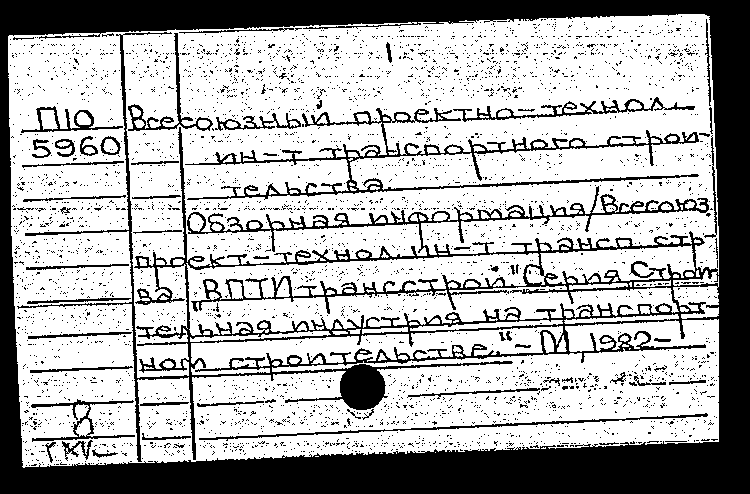 1
П10 Всесоюзный проектно-технол.
5960 ин-т транспортного строи-
тельства.
Обзорная информация/Всесоюз.
проект.-технол. ин-т трансп. стр-
ва "ВПТИтрансстрой." Серия "Строи-
тельная индустрия на транспорт-
ном строительстве." - М, 1982-
8